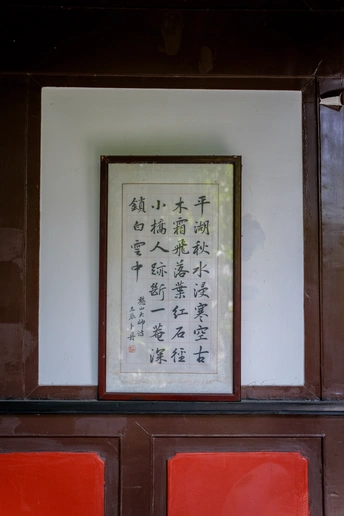 平湖秋水浸寒空古
木霜飛落葉紅石徑
小橋人跡斷一菴深
鎖白雲中
憨山大師詩